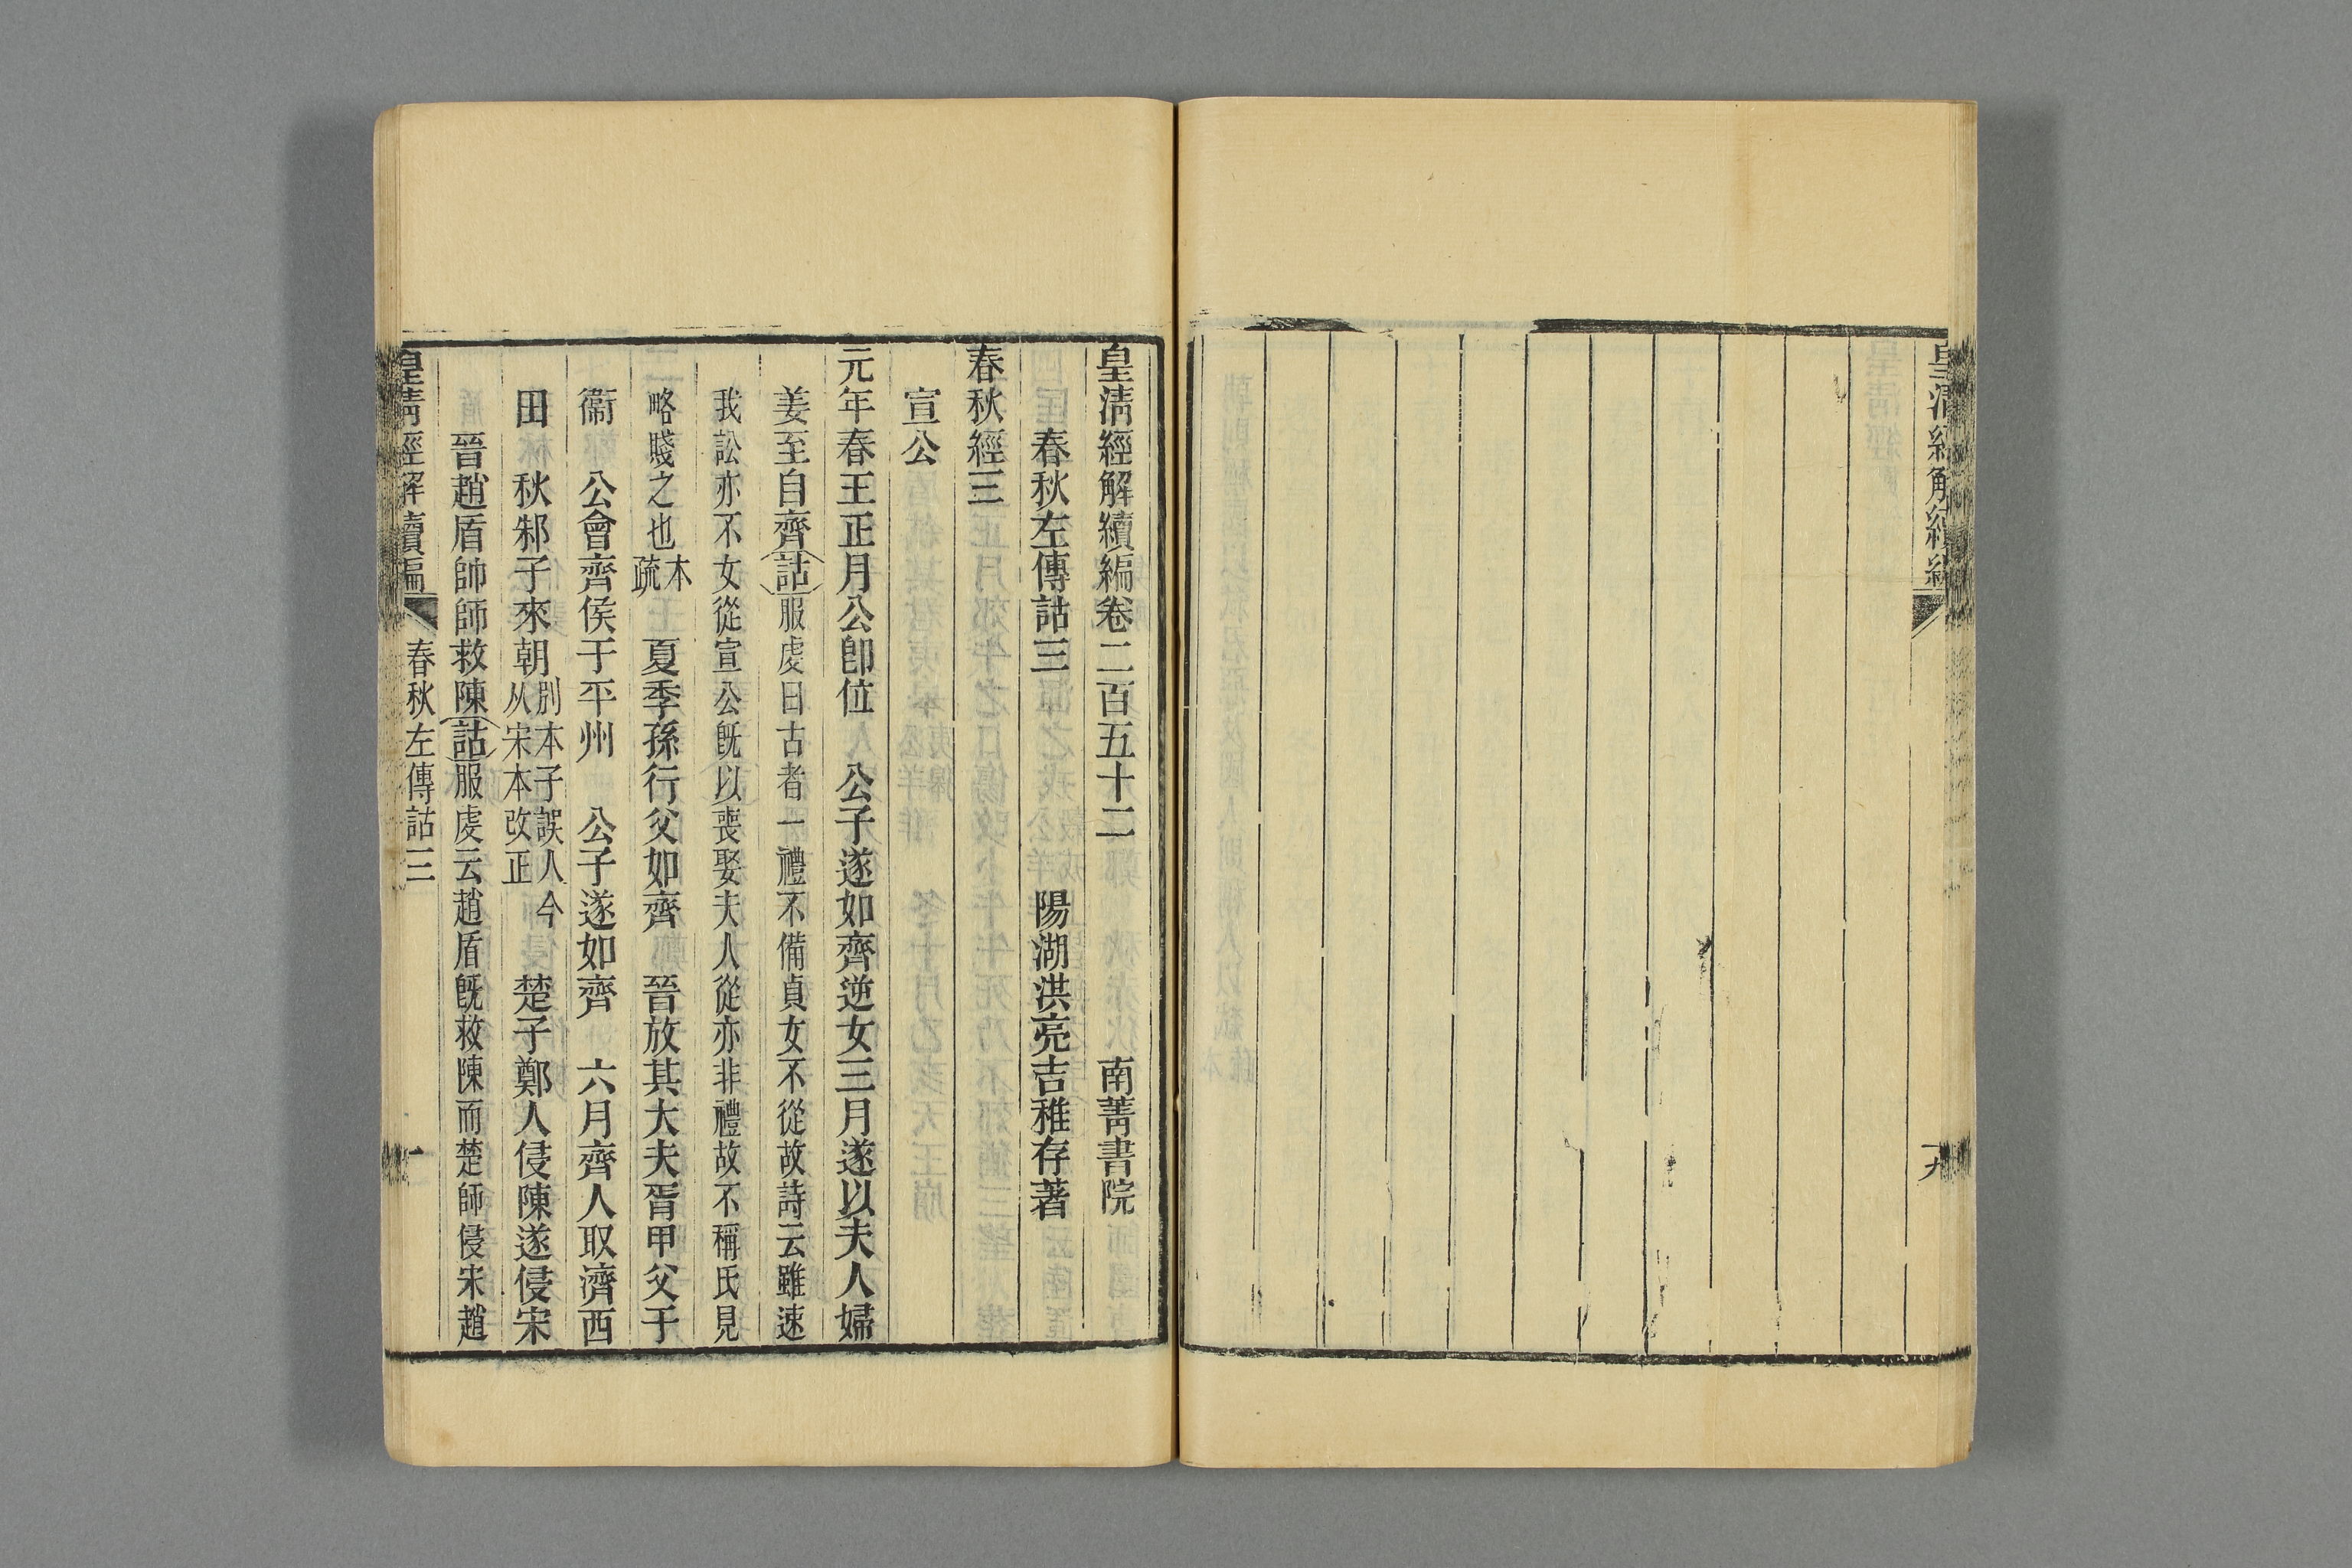 皇清經解續編
十九
皇清經解續編卷二百五十二　南菁書院
春秋左傳詁三　陽湖洪亮吉稚存著
春秋經三
宣公
元年春王正月公卽位　公子遂如齊逆女三月遂以夫人婦
姜至自齊詁服虔曰古者一禮不備貞女不從故詩云雖速
我訟亦不女從宣公旣以喪娶夫人從亦非禮故不稱氏見
略賤之也本疏　夏季孫行父如齊　晉放其大夫胥甲父于
衞　公會齊侯于平州　公子遂如齊　六月齊人取濟西
田　秋邾子來朝別本子誤人今从宋本改正　楚子鄭人侵陳遂侵宋
晉趙盾帥師救陳詁服虔云趙盾旣救陳而楚師侵宋趙
皇清經解續編　春秋左傳詁三　一